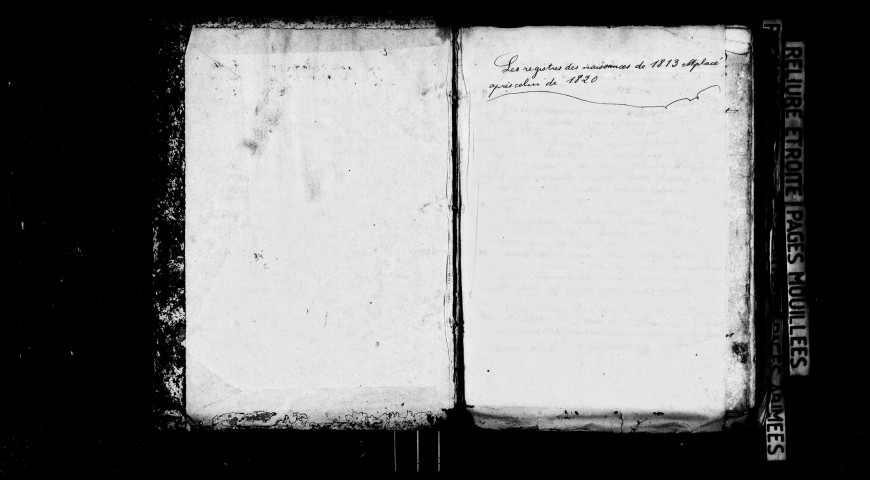 Les registres des naissances de 1813 est placé
après celui de 1820
RELIURE ETROITE PAGES MOUILLEES